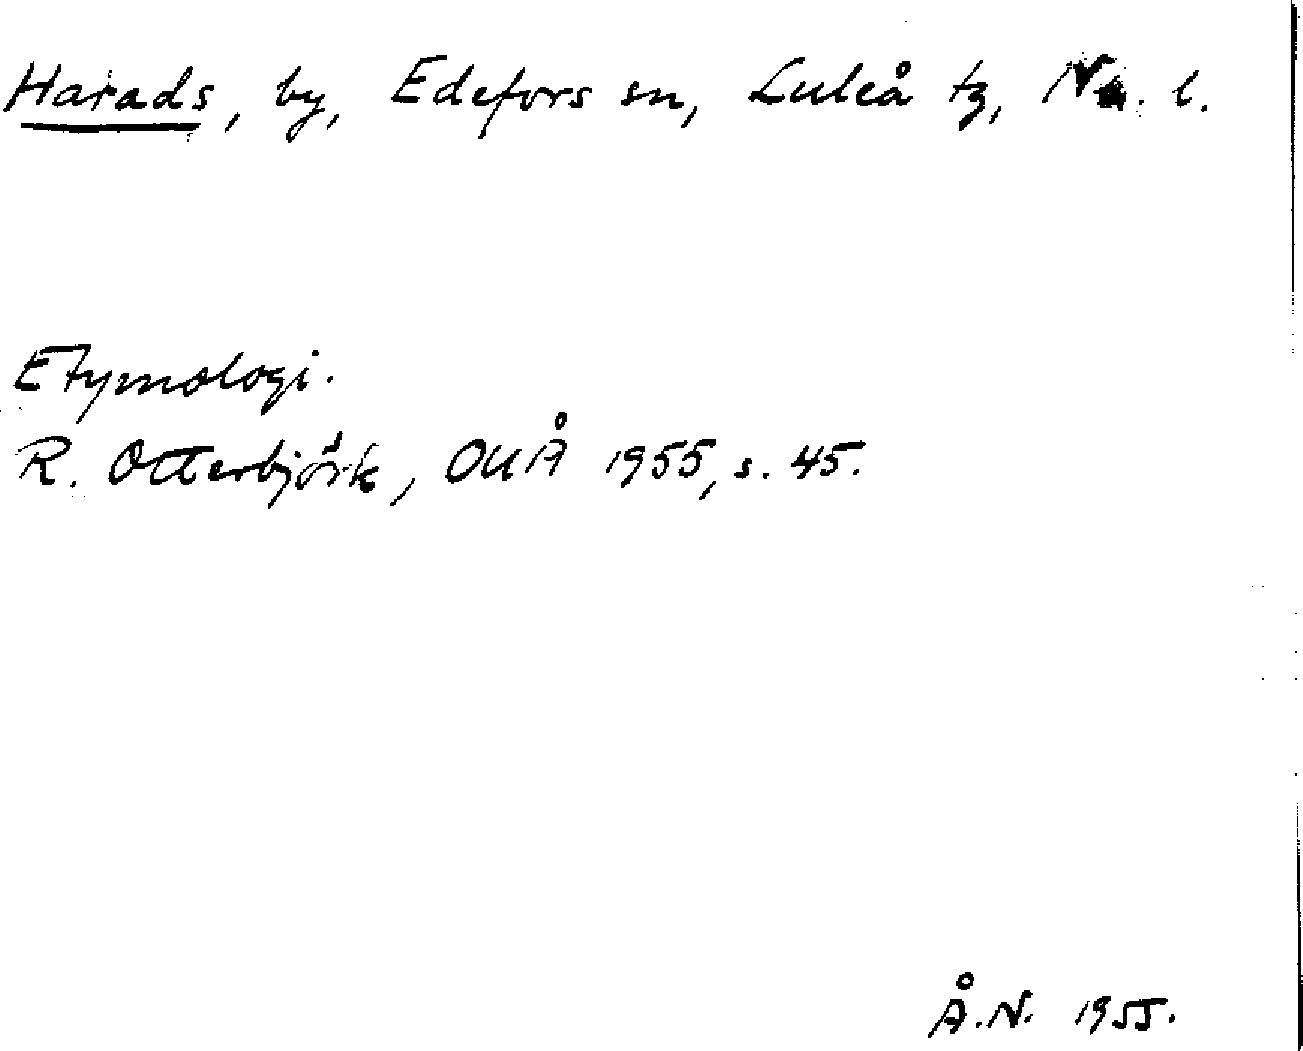 Harads, by, Edefors sn, Luleå tg, l.
Etymologi.
R. Otterbjörk, OUÅ 1955, s. 45.
Å.N. 1955.